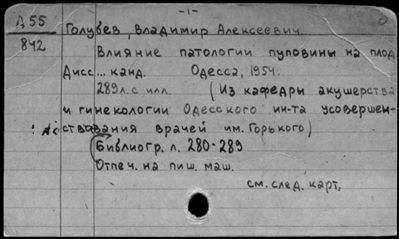 -1-
Д55
842
Голубев, Владимир Алексеевич.
Влияние патологии пуповины на плод
Дисс... канд. Одесса, 1954.
289л. с илл. (Из кафедры акушерства
и гинекологии Одесского ин-та усовершен-
ствования врачей им. Горького)
Библиогр. л. 280-289
Отпеч. на пиш. маш.
см. след. карт.